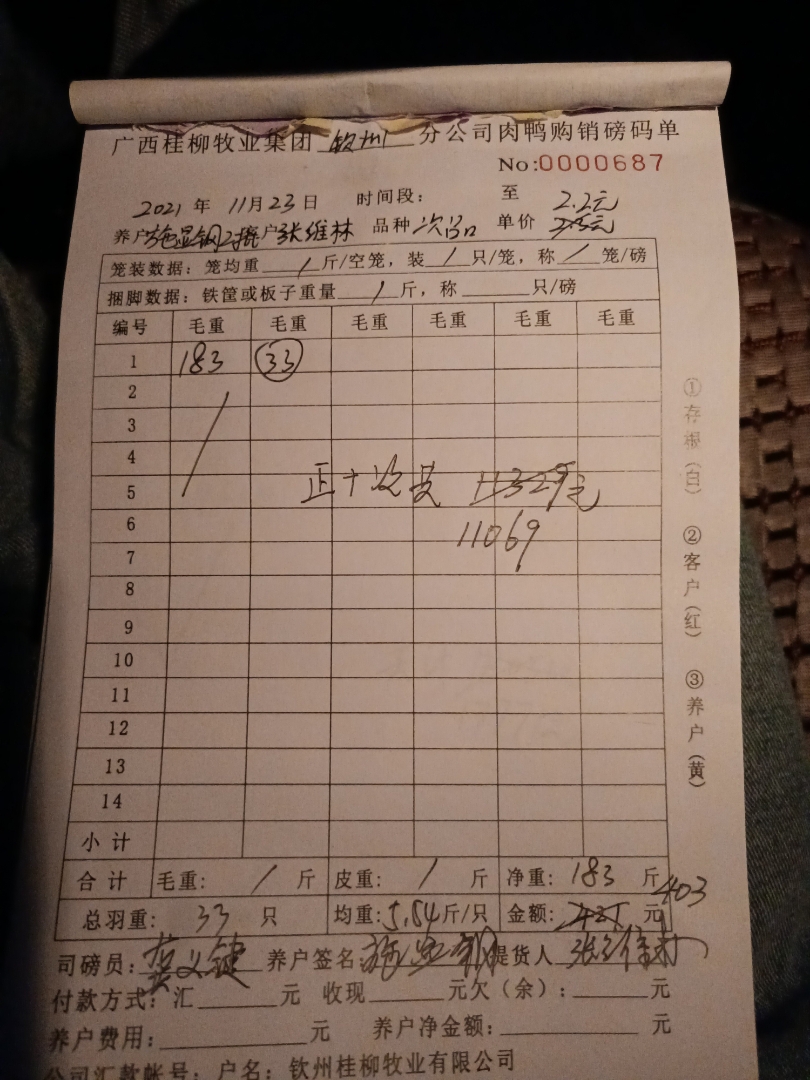 广西桂柳牧业集团 钦州 分公司肉鸭购销磅码单
No:0000687
2021 年 11月23日 时间段: 至 2.2元
养户 客户 张维林 品种 次品 单价
笼装数据：笼均重 / 斤/空笼，装 / 只/笼，称 / 笼/磅
捆脚数据：铁筐或板子重量 / 斤，称 只/磅
编号 毛重 毛重 毛重 毛重 毛重 毛重
1 183 33
2
3
4
5 正十次共 11329元
6 11069
7
8
9
10
11
12
13
14
小计
合计 毛重： / 斤 皮重： / 斤 净重：183 斤
403
总羽重： 33 只 均重：5.54斤/只 金额： 元
司磅员： 养户签名： 提货人 张维林
付款方式：汇 元 收现 元欠（余）： 元
养户费用： 元 养户净金额： 元
公司汇款帐号：户名：钦州桂柳牧业有限公司
①存根（白） ②客户（红） ③养户（黄）